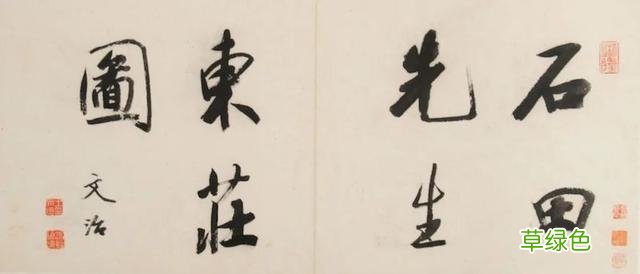 石田
先生
東莊
圖
文治
草绿色